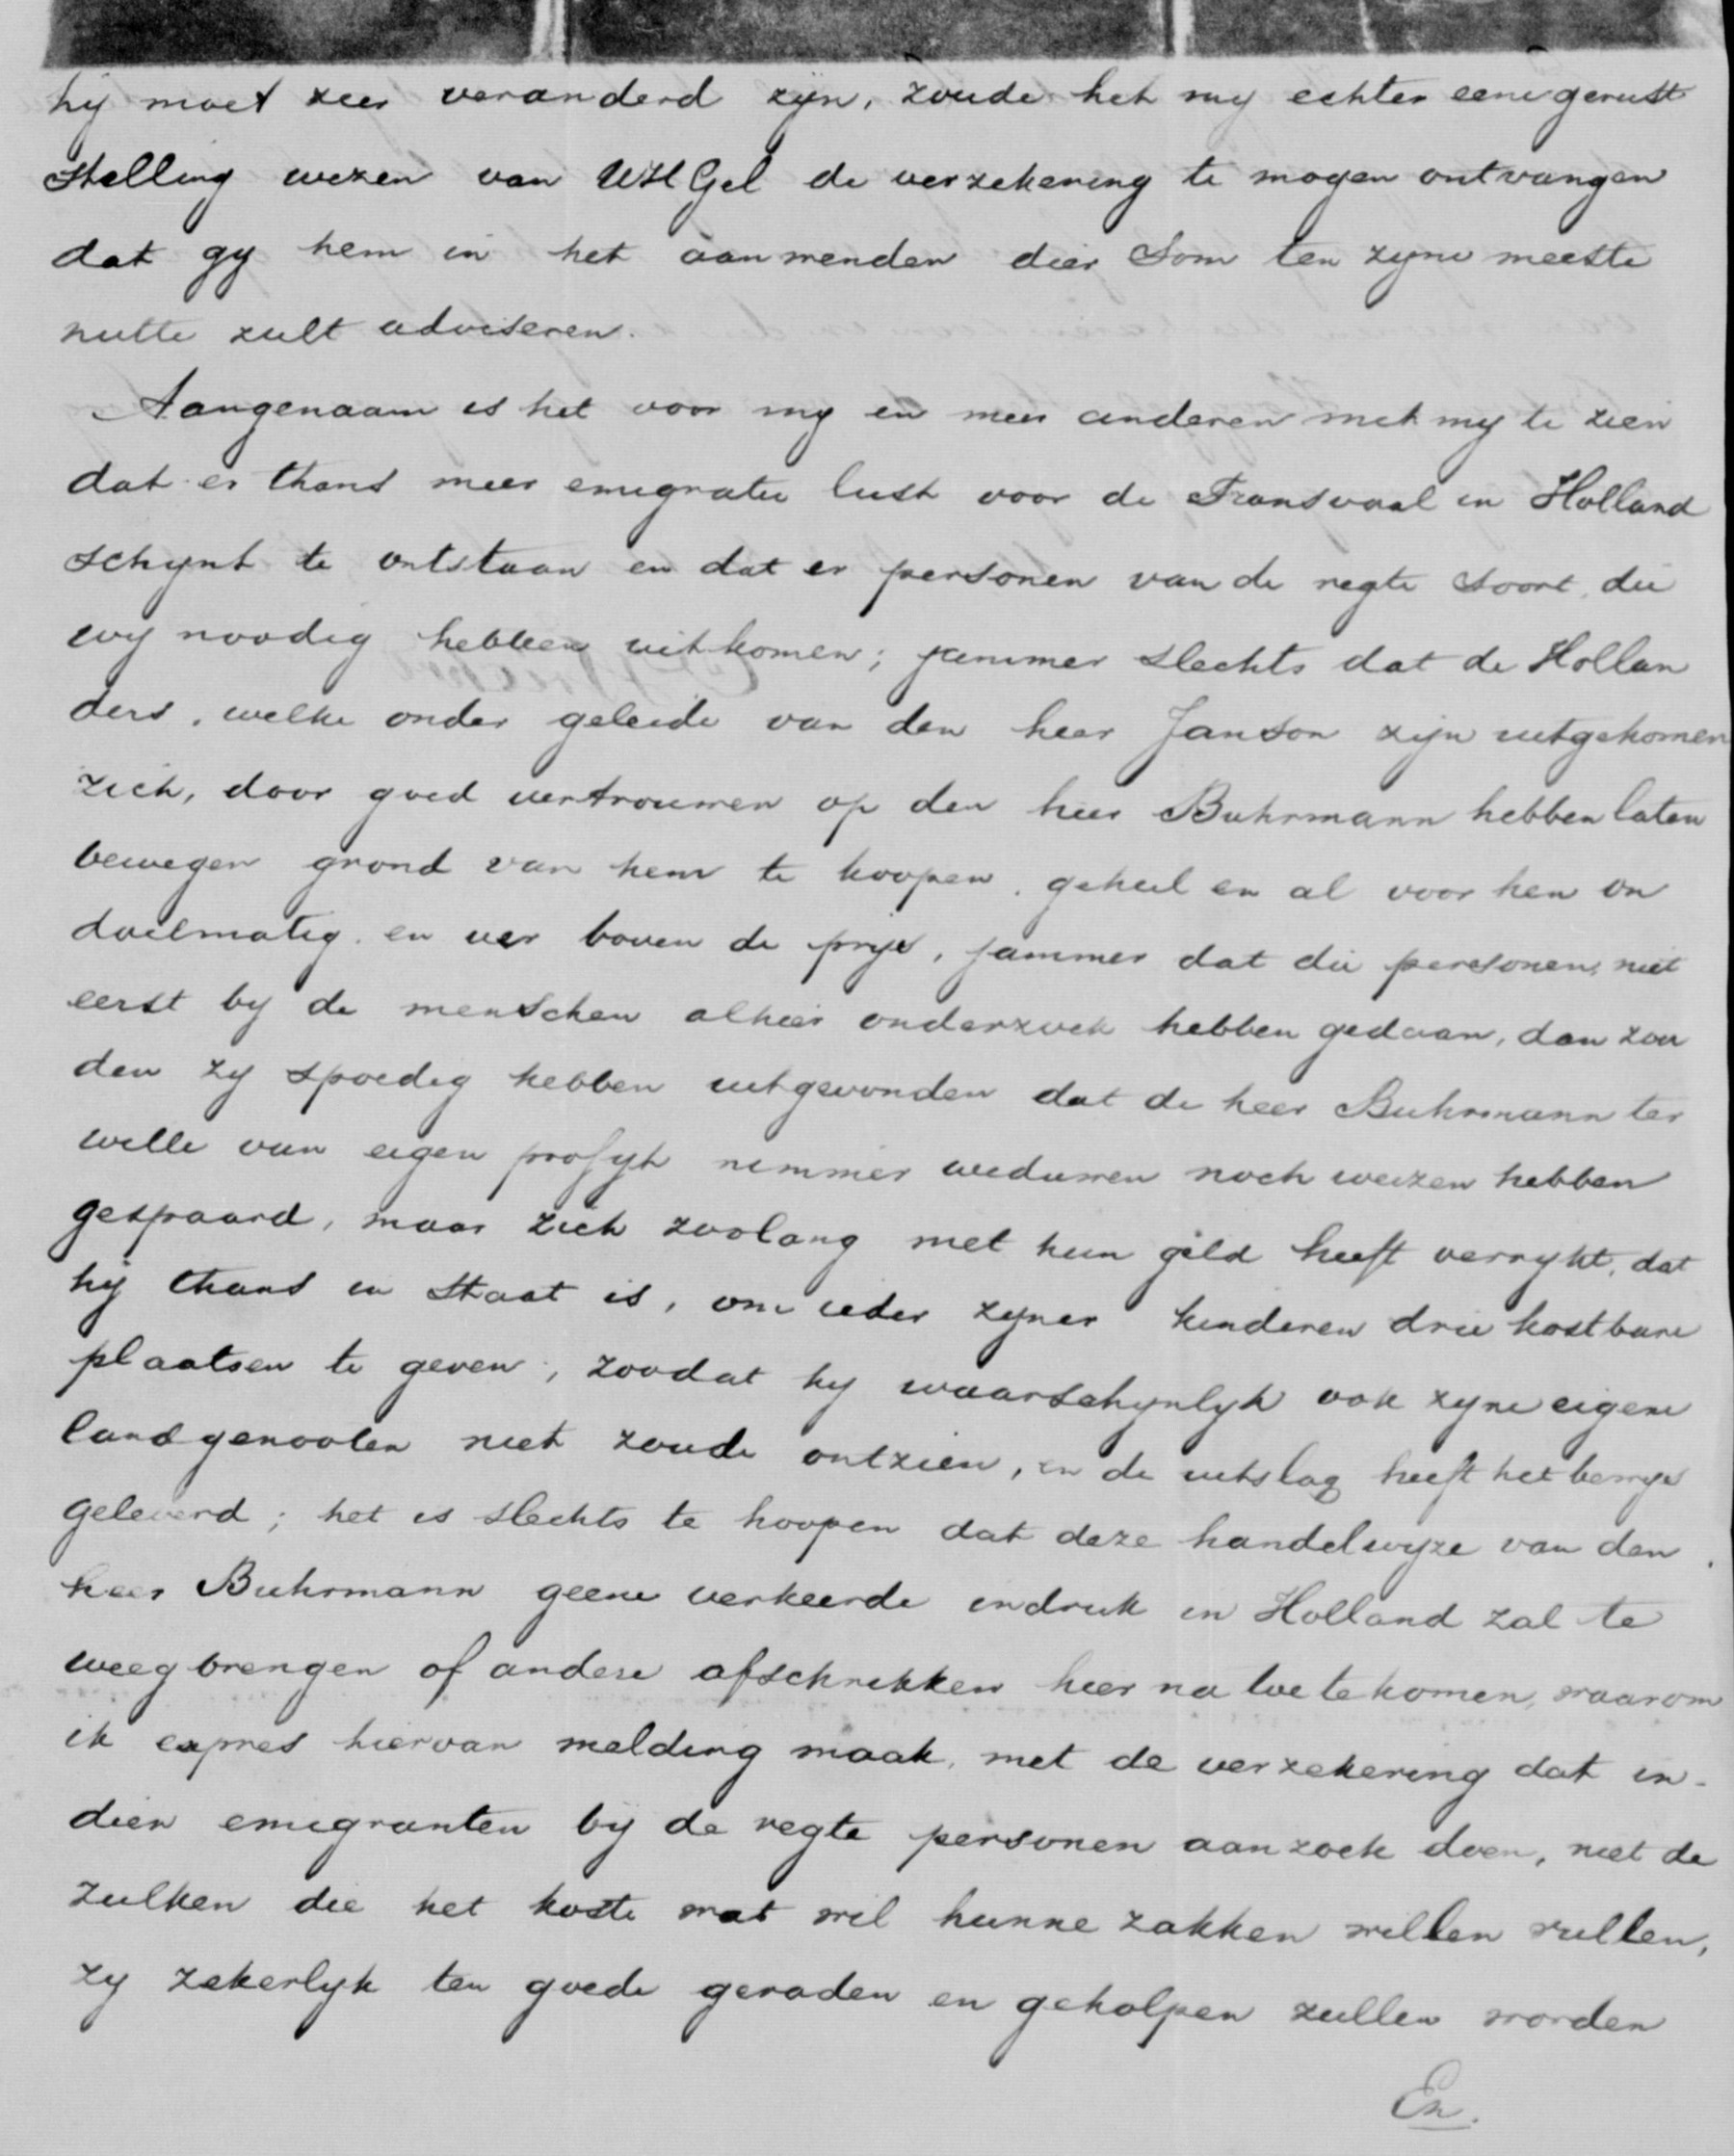 hij moet zeer veranderd zijn, zoude het my echter eene gerust
stelling wezen van UHGel de verzekering te mogen ontvangen
dat gy hem in het aanwenden dier Som ten zyne meeste
nutte zult adviseren.
Aangenaam is het voor my en meer anderen met my te zien
dat er thans meer emigratie lust voor de Transvaal in Holland
schynt te ontstaan en dat er personen van de regte soort, die
wy noodig hebben uitkomen; jammer slechts dat de Hollan
ders, welke onder geleide van den heer Janson zijn uitgekomen
zich, door goed vertrouwen op den heer Buhrmann hebben laten
bewegen grond van hem te koopen, geheel en al voor hen on
doelmatig en ver boven de prijs, jammer dat die personen, niet
eerst by de menschen alhier onderzoek hebben gedaan, dan zou
den zy spoedig hebben uitgevonden dat de heer Buhrmann ter
wille van eigen profyt nimmer weduwen noch weezen hebben
gespaard, maar zich zoolang met hun geld heeft verrykt, dat
hij thans in Staat is, om ieder zyner kinderen drie kostbare
plaatsen te geven, zoodat hy waarschynlyk ook zyne eigene
landgenooten niet zoude ontzien, en de uitslag heeft het bewys
geleverd; het is slechts te hoopen dat deze handelwyze van den
heer Buhrmann geene verkeerde indruk in Holland zal te
weeg brengen of andere afschrikken hier na toe te komen, waarom
ik expres hiervan melding maak, met de verzekering dat in-
dien emigranten bij de regte personen aanzoek doen, niet de
zulken die het koste wat wil hunne zakken willen vullen,
zy zekerlyk ten goede geraden en geholpen zullen worden
En.